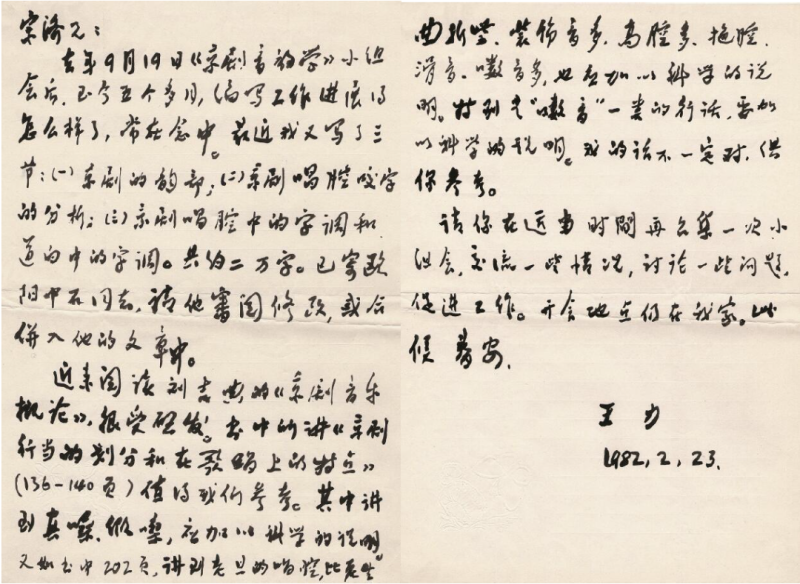 宗济兄：
去年9月19日《京剧音韵学》小组
会后，至今五个多月，编写工作进展得
怎么样了，常在念中。最近我又写了三
节：(一)京剧的韵部；(二)京剧唱腔咬字
的分析；(三)京剧唱腔中的字调和
道白中的字调。共约二万字。已寄欧
阳中石同志，请他审阅修改，或合
併入他的文章中。
近来阅读刘吉典的《京剧音乐
概论》，很受启发。书中所讲《京剧
行当的划分和在歌唱上的特点》
(136-140页)值得我们参考。其中讲
到真嗓、假嗓，应加以科学的说明。
又如书中202页，讲到老旦的唱腔，比老生
曲折些，装饰音多，高腔多，拖腔、
滑音、嗽音多，也应加以科学的说
明。特别是“嗽音”一类的行话，要加
以科学的说明。我的话不一定对，供
你参考。
请你在适当时間再召集一次小
组会，交流一些情况，讨论一些问题，
促进工作。开会地点仍在我家。此
候 著安，
王力
1982，2，23.